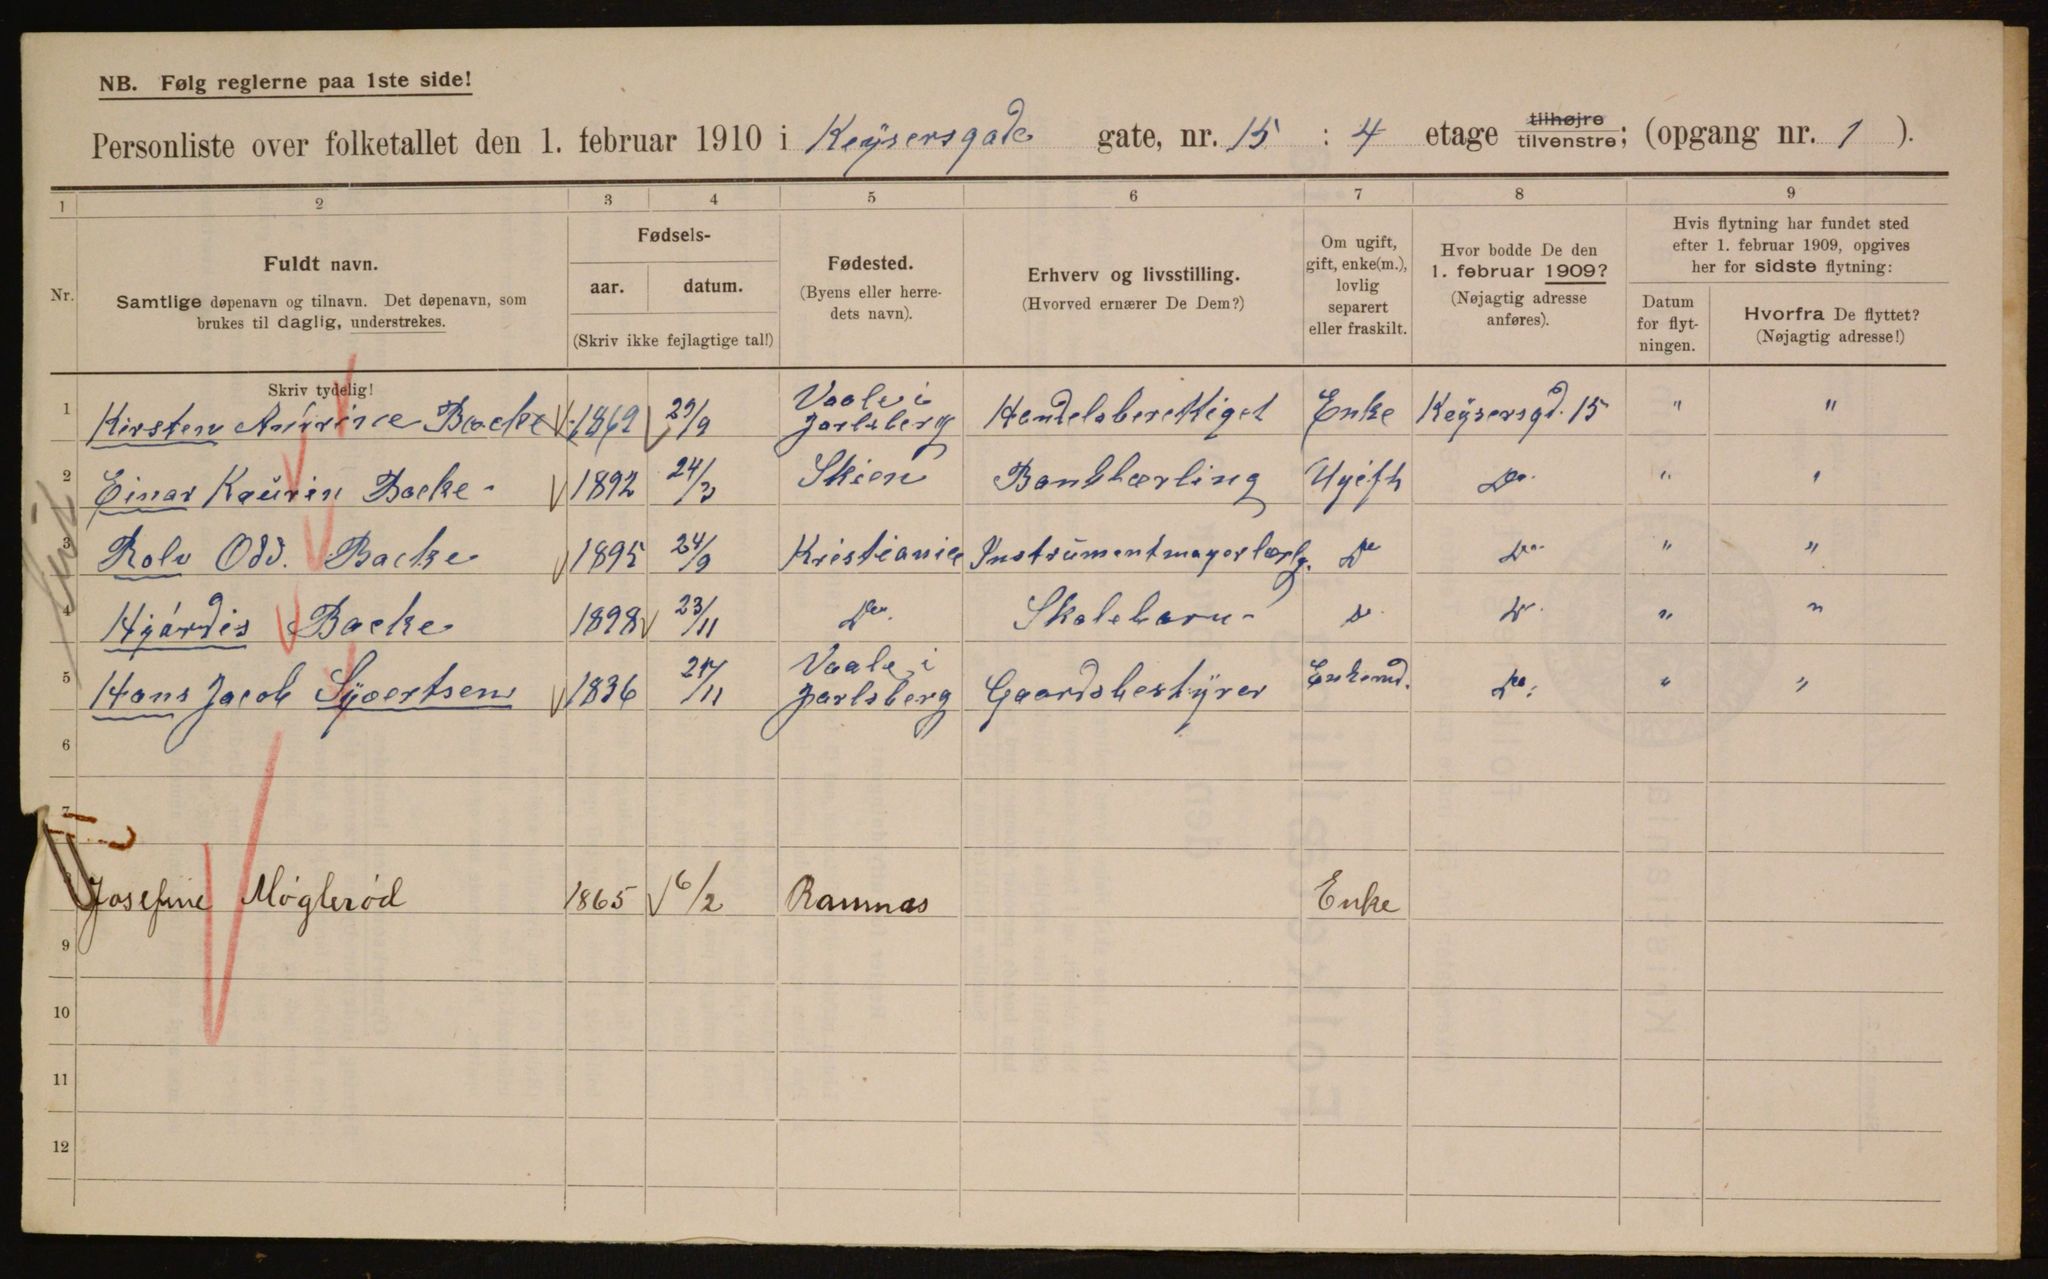 NB. Følg reglerne paa 1ste side!
Personliste over folketallet den 1. februar 1910 i Keysersgade gate, nr. 15 : 4 etage tilhøjre tilvenstre; (opgang nr. 1 ).
1 2 3 4 5 6 7 8 9
Nr.
Fuldt navn.
Samtlige døpenavn og tilnavn. Det døpenavn, som
brukes til daglig, understrekes.
Skriv tydelig!
Fødsels-
aar. datum.
(Skriv ikke fejlagtige tal!)
Fødested.
(Byens eller herre-
dets navn).
Erhverv og livsstilling.
(Hvorved ernærer De Dem?)
Om ugift,
gift, enke(m.),
lovlig
separert
eller fraskilt.
Hvor bodde De den
1. februar 1909?
(Nøjagtig adresse
anføres).
Hvis flytning har fundet sted
efter 1. februar 1909, opgives
her for sidste flytning:
Datum
for flyt-
ningen.
Hvorfra De flyttet?
(Nøjagtig adresse!)
1 Kirsten Backe 1862 29/9 Vaale i Jarlsberg Handelsberettiget Enke Keysersgd. 15 " "
2 Einar Kaurin Backe - 1892 24/3 Skien Banklærling Ugift Do. " "
3 Rolv Odd. Backe 1895 24/9 Kristiania Instrumentmagerlærlg. Do Do. " "
4 Hjördis Backe 1898 23/11 Do. Skolebarn - Do. Do. " "
5 Hans Jacob Syvertsen 1836 24/11 Vaale i Jarlsberg Gaardsbestyrer Enkemd. Do. " "
6
7
Josefine Møglerød 1865 6/2 Ramnas Enke
9
10
11
12